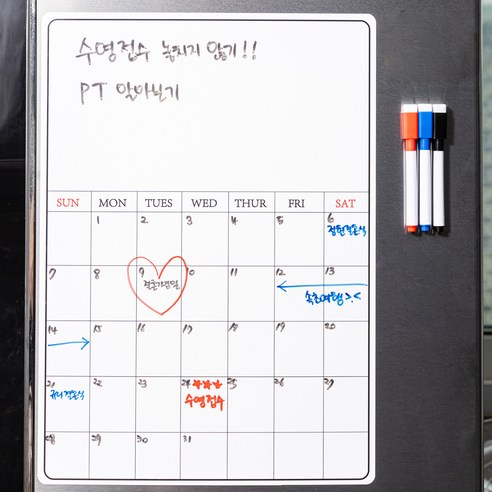 수영접수 놓치지 않기!!
PT 알아보기
SUN MON TUES WED THUR FRI SAT
1 2 3 4 5 6
정현결혼식
7 8 9 10 11 12 13
결혼기념일
속초여행 >.<
14 15 16 17 18 19 20
21 22 23 24 25 26 27
결혼식
수영접수
28 29 30 31